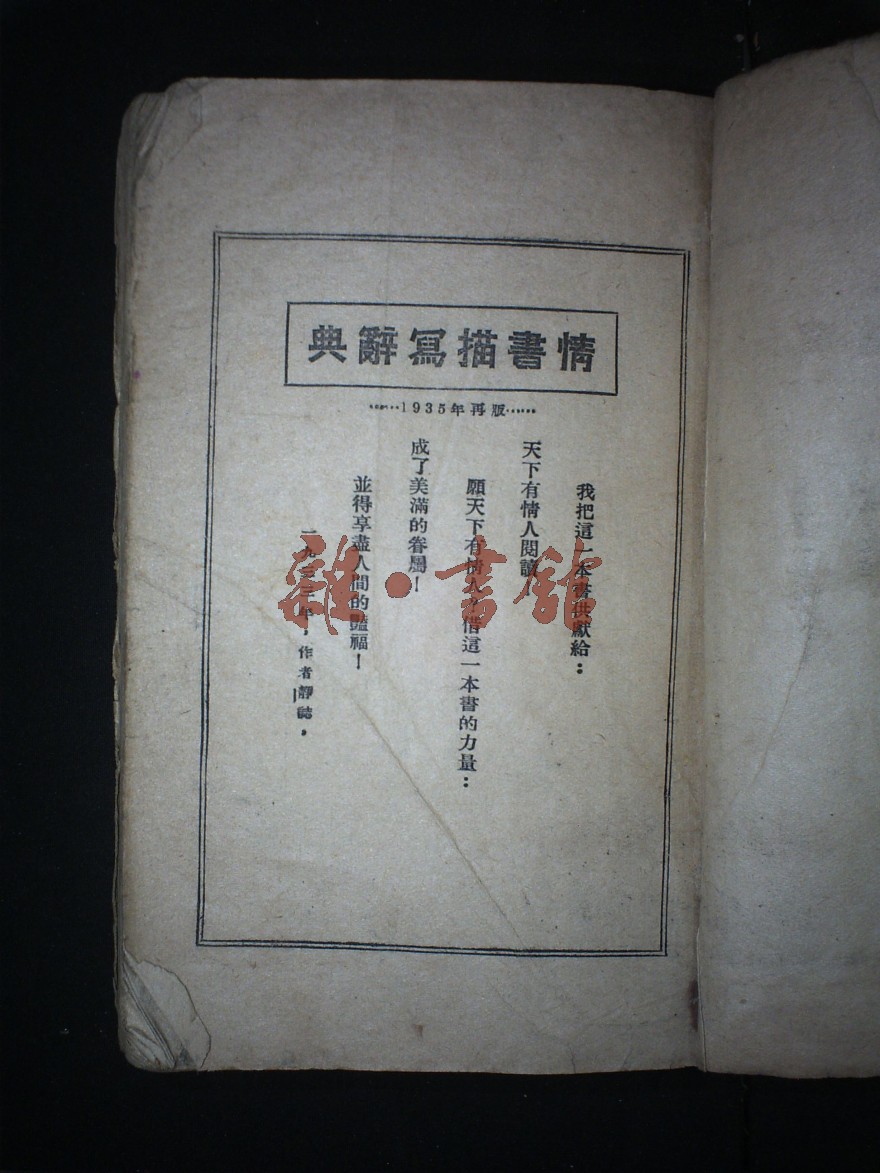 情書描寫辭典
……1935年再版……
我把這一本書供獻給：
天下有情人閱讀！
願天下有情人，借這一本書的力量：
成了美滿的眷屬！
並得享盡人間的豔福！
一九三三年，作者靜誌。
雜·書館